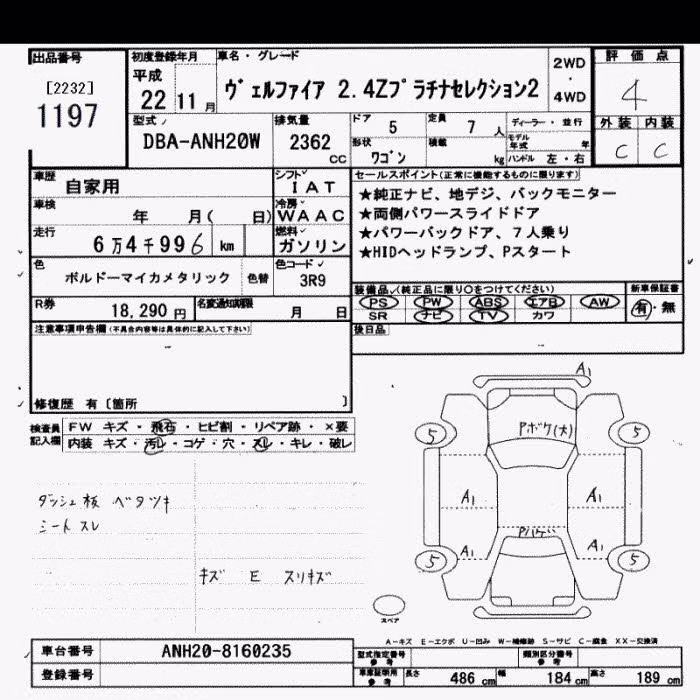 出品番号 初度登録年月 車名・グレード 2WD 評価点
[2232] 平成 ・
1197 22 11月 ヴェルファイア 2.4Zプラチナセレクション2 4WD 4
型式 排気量 ドア 5 定員 7 人 ディーラー・並行 外装 内装
DBA-ANH20W 2362 cc 形状 ワゴン 積載 kg モデル年式 年 C C
ハンドル 左・右
車歴 自家用 シフト IAT セールスポイント(正常に機能するものに限ります)
車検 年 月( 日) 冷房 WAAC ★純正ナビ、地デジ、バックモニター
★両側パワースライドドア
走行 6万4千996 km 燃料 ガソリン ★パワーバックドア、7人乗り
★HIDヘッドランプ、Pスタート
色 ボルドーマイカメタリック 色替 色コード 3R9
装備品(純正品に限り○をつけてください) 新車保証書
R券 18,290円 名変通知期限 月 日 PS PW ABS エアB AW 有・無
SR ナビ TV カワ
注意事項申告欄(不具合内容等は具体的に記入して下さい) 後日品
-
-
修復歴 有 [箇所 ]
検査員記入欄 FW キズ・飛石・ヒビ割・リペア跡・×要
内装 キズ・汚レ・コゲ・穴・スレ・キレ・破レ
ダッシュ板 ベタツキ
シートスレ
キズ E スリキズ
A1
Pボケ(大)
5 5
A1 A1
Pハゲ
A1 A1
5 5
スペア
A-キズ E-エクボ U-凹み W-補修跡 S-サビ C-腐食 XX-交換済
車台番号 ANH20-8160235 型式指定番号 参考 類別区分番号 参考
登録番号 車庫証明用 参考 長さ 486 cm 幅 184 cm 高さ 189 cm